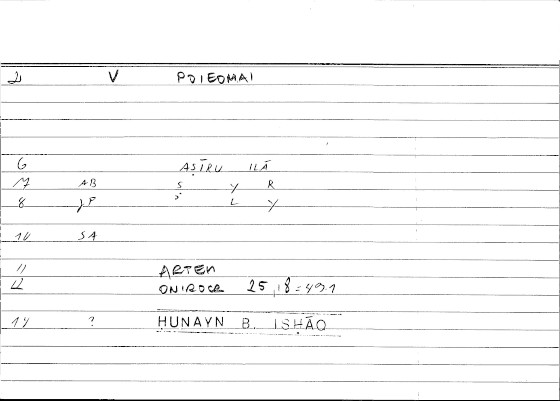 2 V POIEOMAI
6 AṢĪRU ILĀ
7 AB Ṣ Y R
8 J.P ṣ́ L Y
10 SA
11 ARTEM
12 ONIROCR 25,18 = 49.1
14 ? HUNAYN B. ISḤĀQ